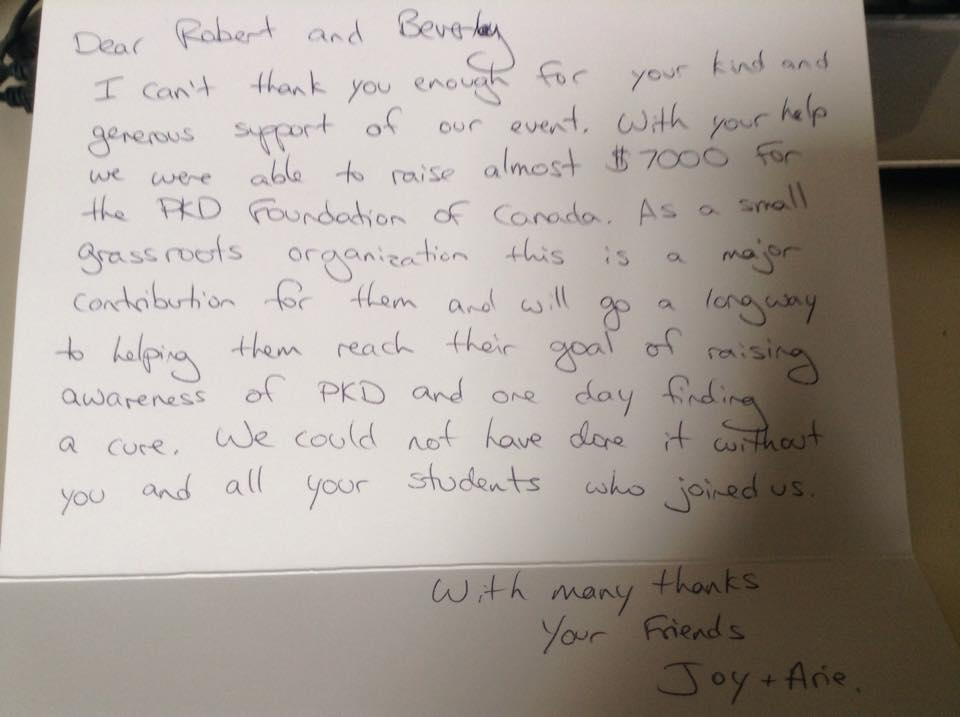 Dear Robert and Beverley
I can't thank you enough for your kind and
generous support of our event. With your help
we were able to raise almost $7000 for
the PKD Foundation of Canada. As a small
grassroots organization this is a major
contribution for them and will go a long way
to helping them reach their goal of raising
awareness of PKD and one day finding
a cure. We could not have done it without
you and all your students who joined us.
With many thanks
Your Friends
Joy + Arie.